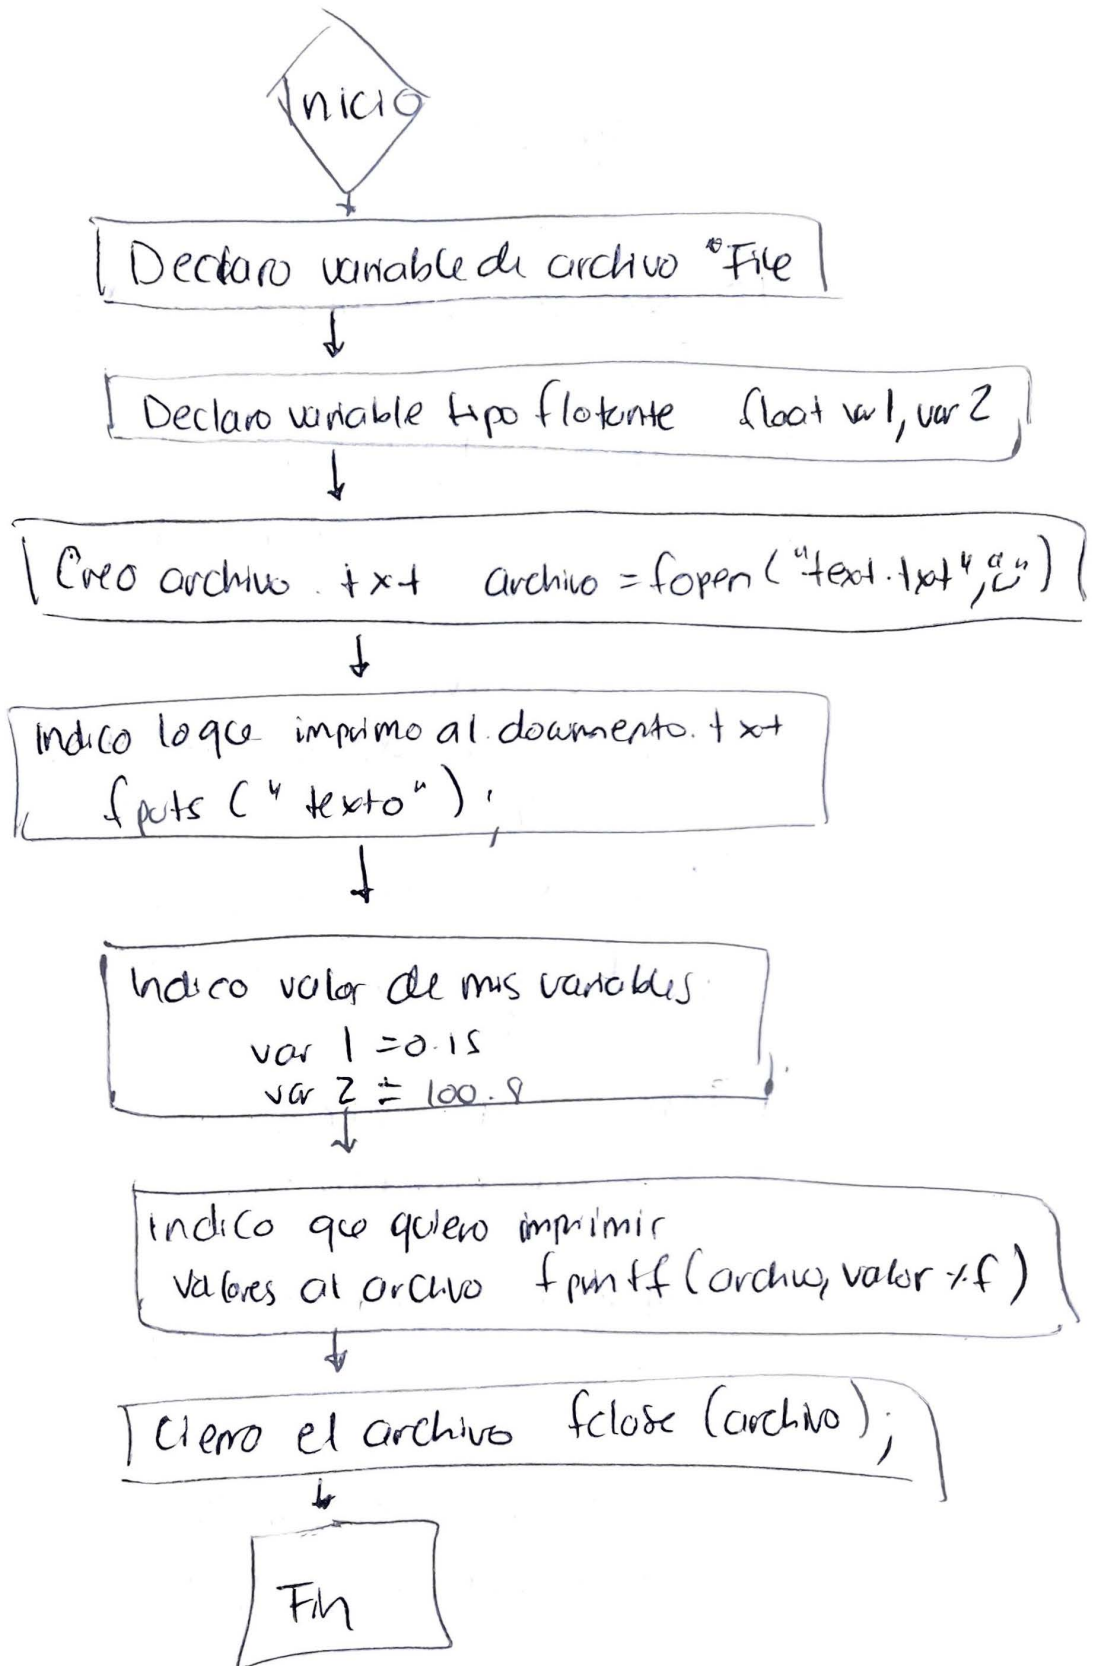 Inicio
Declaro variable de archivo *File
Declaro variable tipo flotante float var1, var2
Creo archivo .txt archivo = fopen ("text.txt",
Indico lo que imprimo al documento.txt
fputs ("texto");
Indico valor de mis variables
var 1 = 0.15
var 2 = 100.8
indico que quiero imprimir
valores al archivo fprintf (archivo, valor %f)
Cierro el archivo fclose (archivo);
Fin